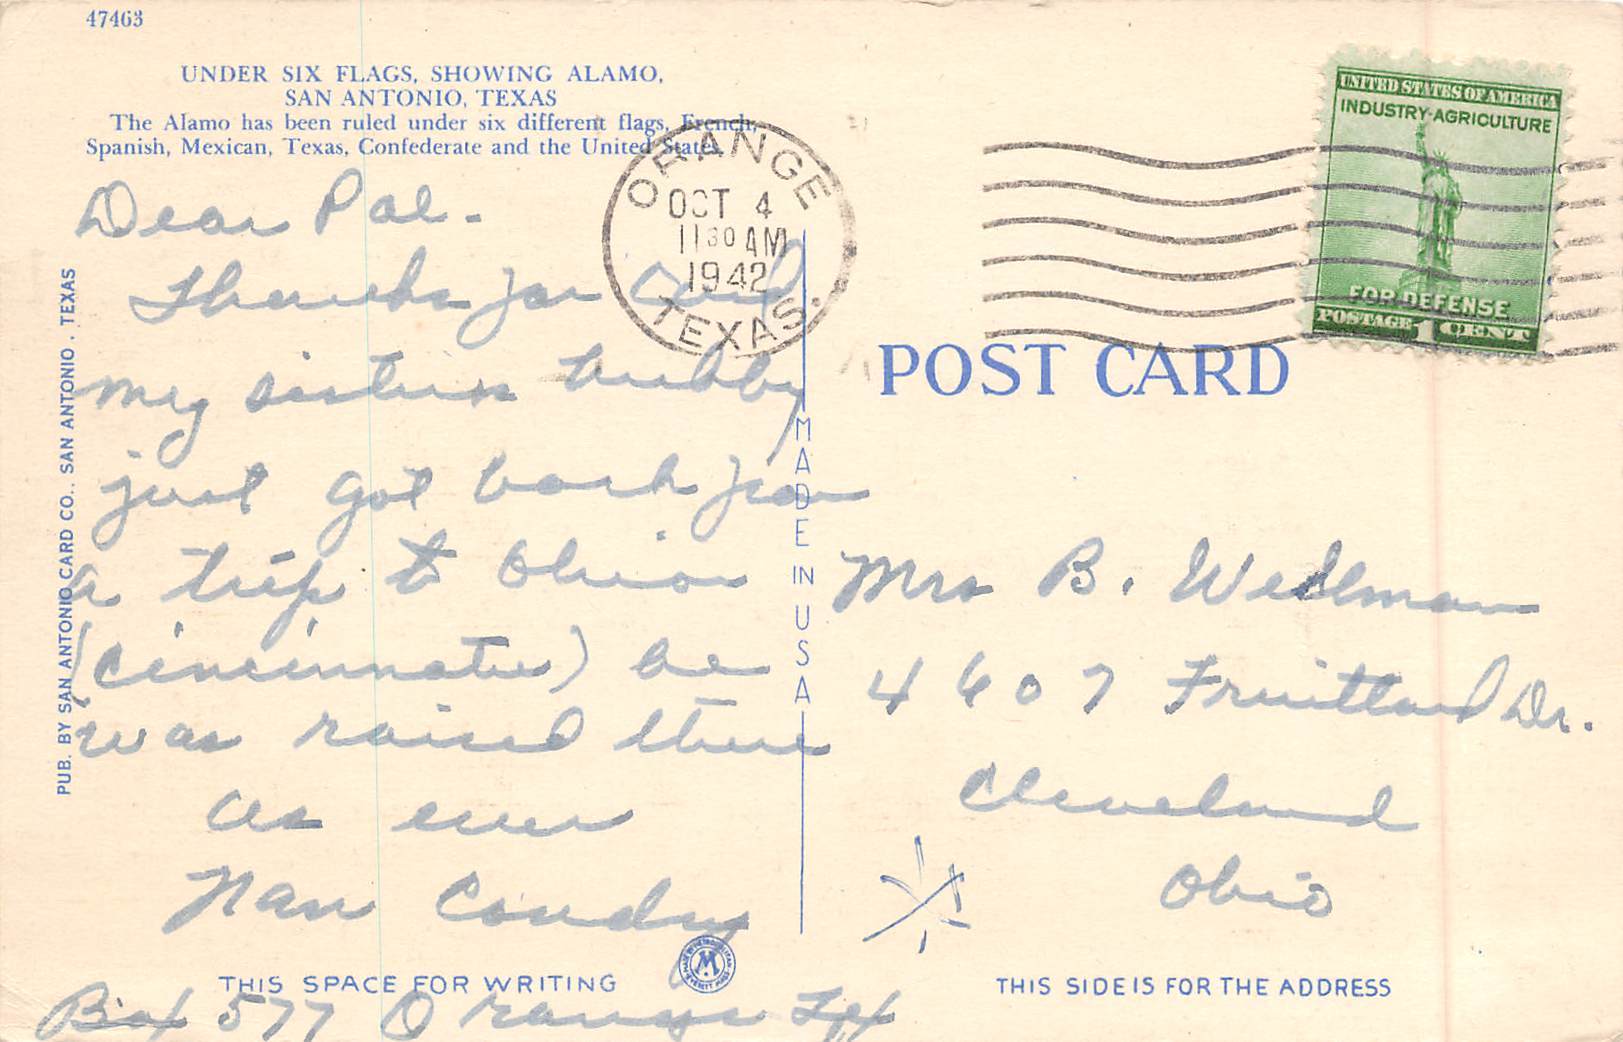 47463
UNDER SIX FLAGS, SHOWING ALAMO,
SAN ANTONIO, TEXAS
The Alamo has been ruled under six different flags, French,
Spanish, Mexican, Texas, Confederate and the United States.
Dear Pal -
Thanks for Card
my sisters hubby
just got back from
a trip to Ohio
(Cincinnati) he
was raised there
as ever
Nan
THIS SPACE FOR WRITING
Box 577 Orange Tex
PUB. BY SAN ANTONIO CARD CO., SAN ANTONIO, TEXAS
MADE IN USA
ORANGE
OCT 4
11 30 AM
1942
TEXAS.
UNITED STATES OF AMERICA
INDUSTRY-AGRICULTURE
FOR DEFENSE
POSTAGE 1 CENT
POST CARD
Mrs B. Wedlman
4607 Fruitland Dr.
Cleveland
Ohio
THIS SIDE IS FOR THE ADDRESS
M